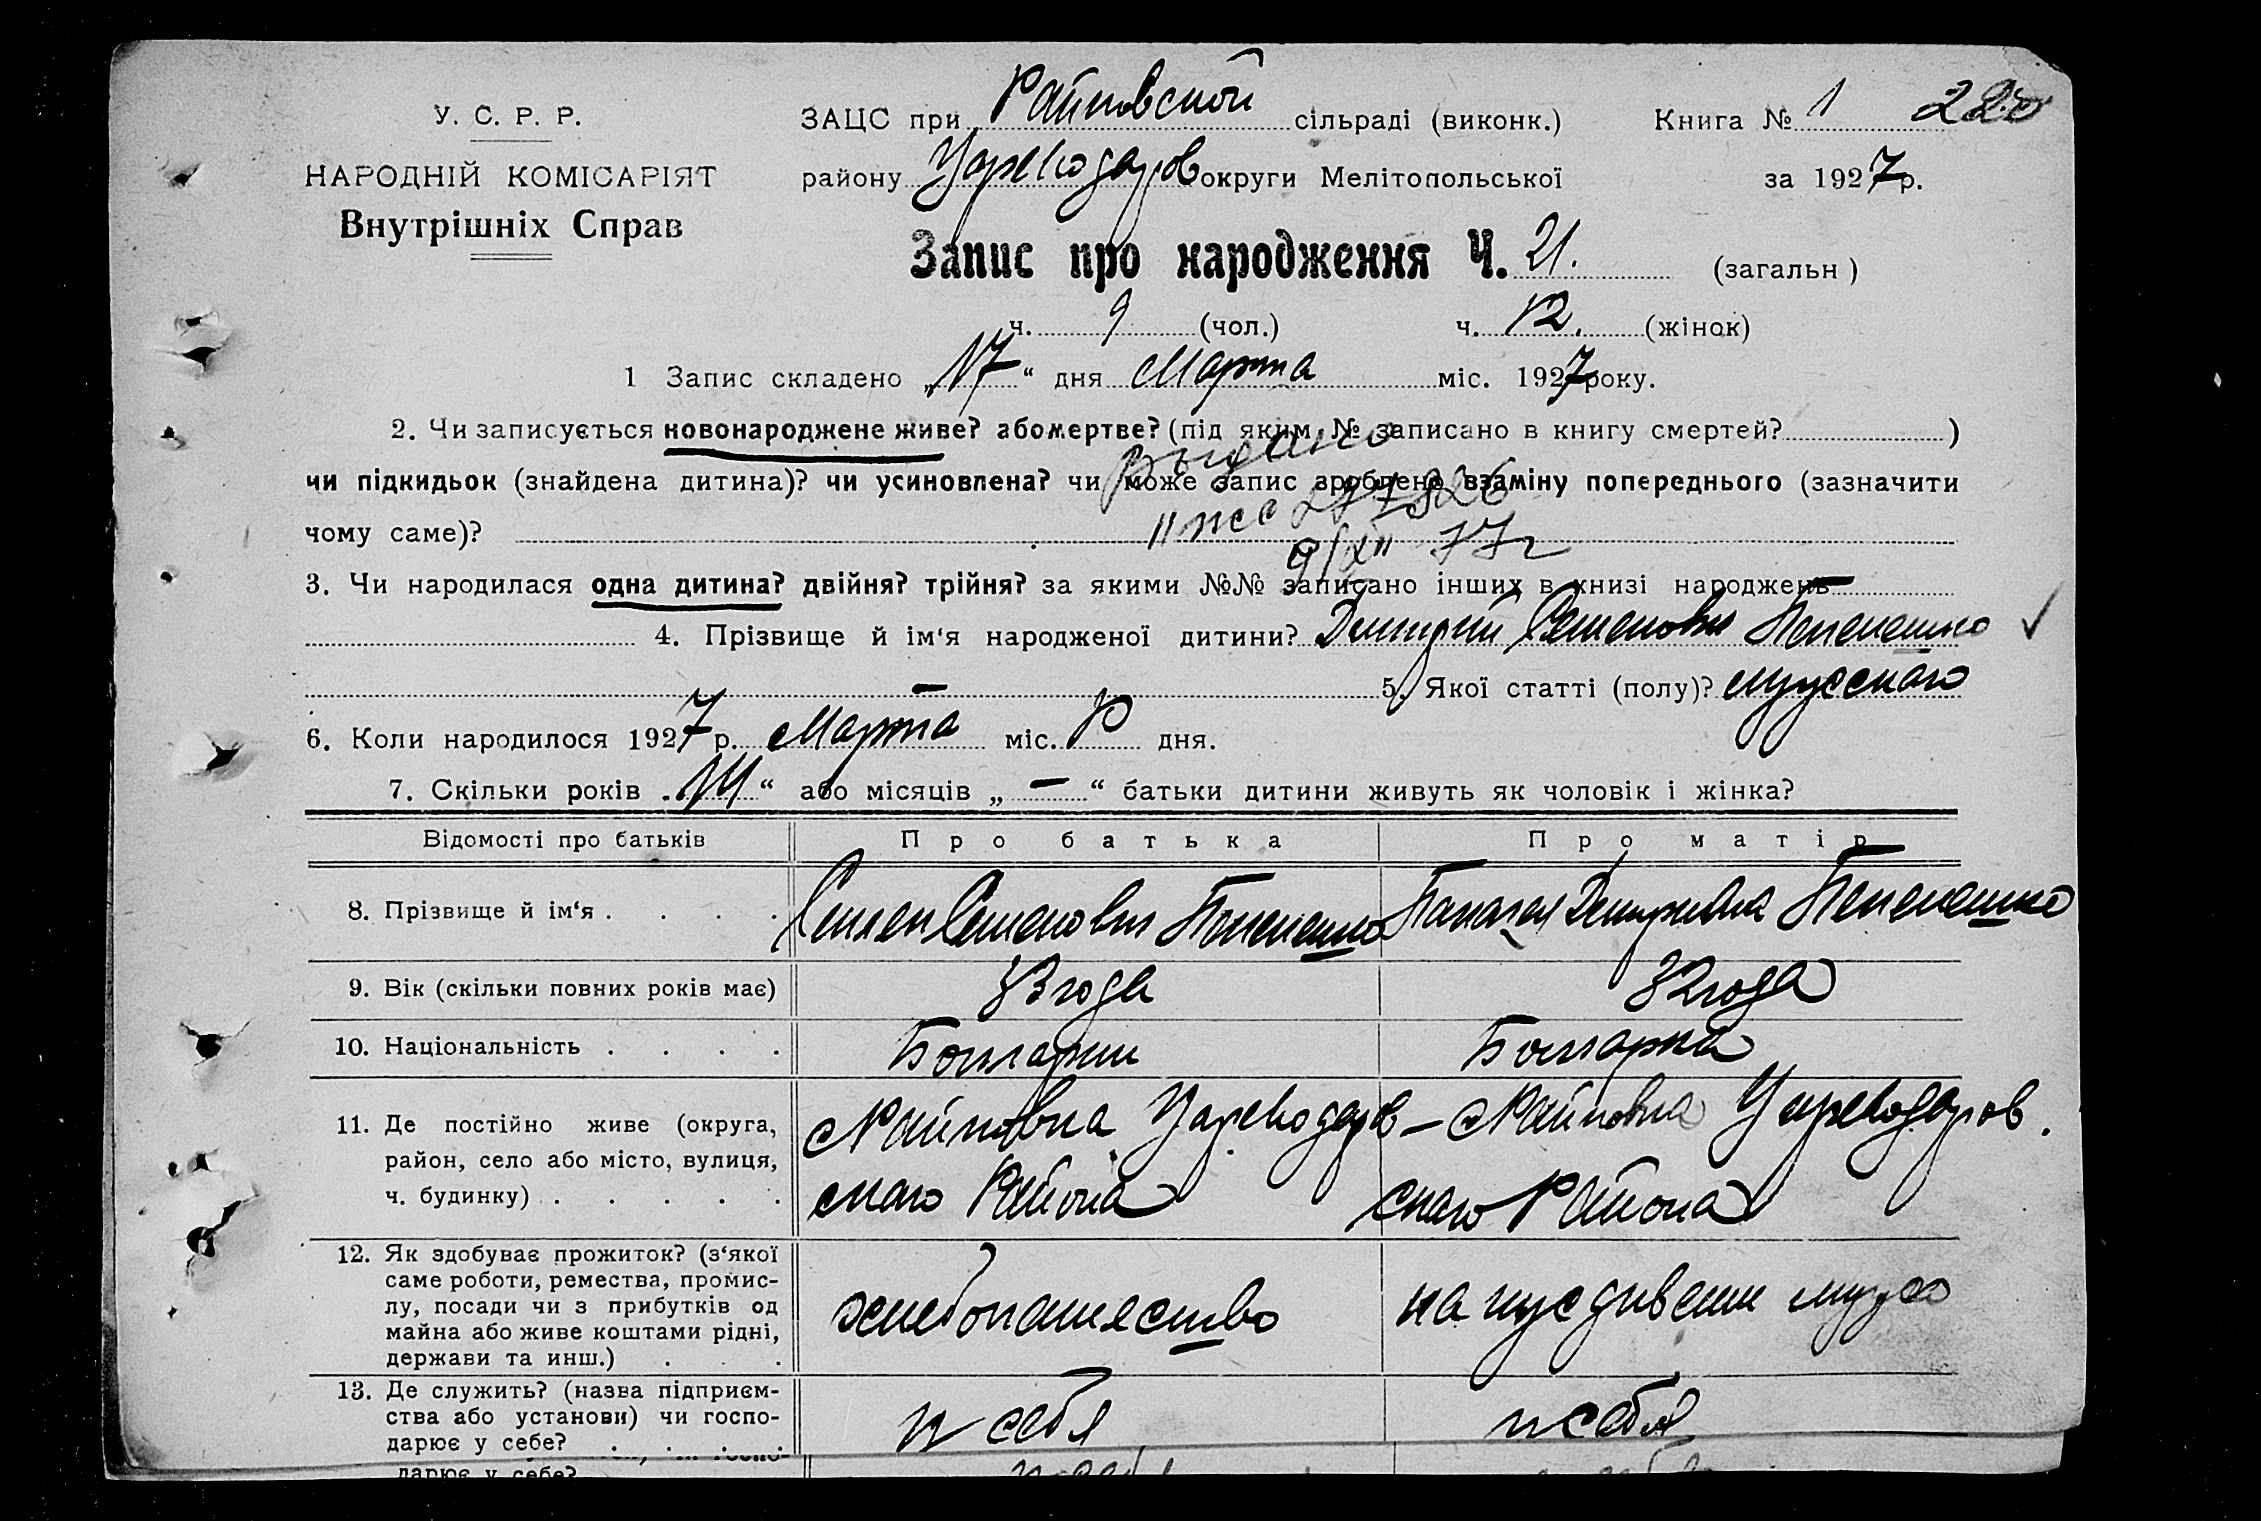 У. С. Р. Р.
НАРОДНІЙ КОМІСАРІЯТ
Внутрішніх Справ
ЗАЦС при Райновской сільраді (виконк.) Книга № 1 220
району Цареводаров округи Мелітопольської за 1927 р.
Запис про народження Ч. 21. (загальн)
ч. 9 (чол.) ч. 12. (жінок)
1 Запис складено „17“ дня Марта міс. 1927 року.
2. Чи записується новонароджене живе? або мертве? (під яким № записано в книгу смертей? )
Выдано
чи підкидьок (знайдена дитина)? чи усиновлена? чи може запис зроблено взаміну попереднього (зазначити
277826
чому саме)?
9/XII 77г
3. Чи народилася одна дитина? двійня? трійня? за якими №№ записано інших в книзі народжень —
4. Прізвище й ім‘я народженої дитини? Дмитрий Семенович
— 5. Якої статті (полу)? мужскаго
6. Коли народилося 1927 р. Марта міс. дня.
7. Скільки років „14“ або місяців „—“ батьки дитини живуть як чоловік і жінка?
Відомості про батьків Про батька Про матір
8. Прізвище й ім‘я . . . . Семен Семенович Дмитриевна
9. Вік (скільки повних років має) 33 года 32 года
10. Національність . . . . Болгарин Болгарка
11. Де постійно живе (округа, район, село або місто, вулиця, ч. будинку) . . . . .
с Райновка Цареводаров-
скаго Района
с Райновка Цареводаров.
скаго Района
12. Як здобуває прожиток? (з‘якої
саме роботи, ремества, промис-
лу, посади чи з прибутків од
майна або живе коштами рідні,
держави та инш.) . . .
хлебопашество
на иждивении мужа
13. Де служить? (назва підприєм-
ства або установи) чи госпо-
дарює у себе? . . . .
у себя у себя
дарює у себе?